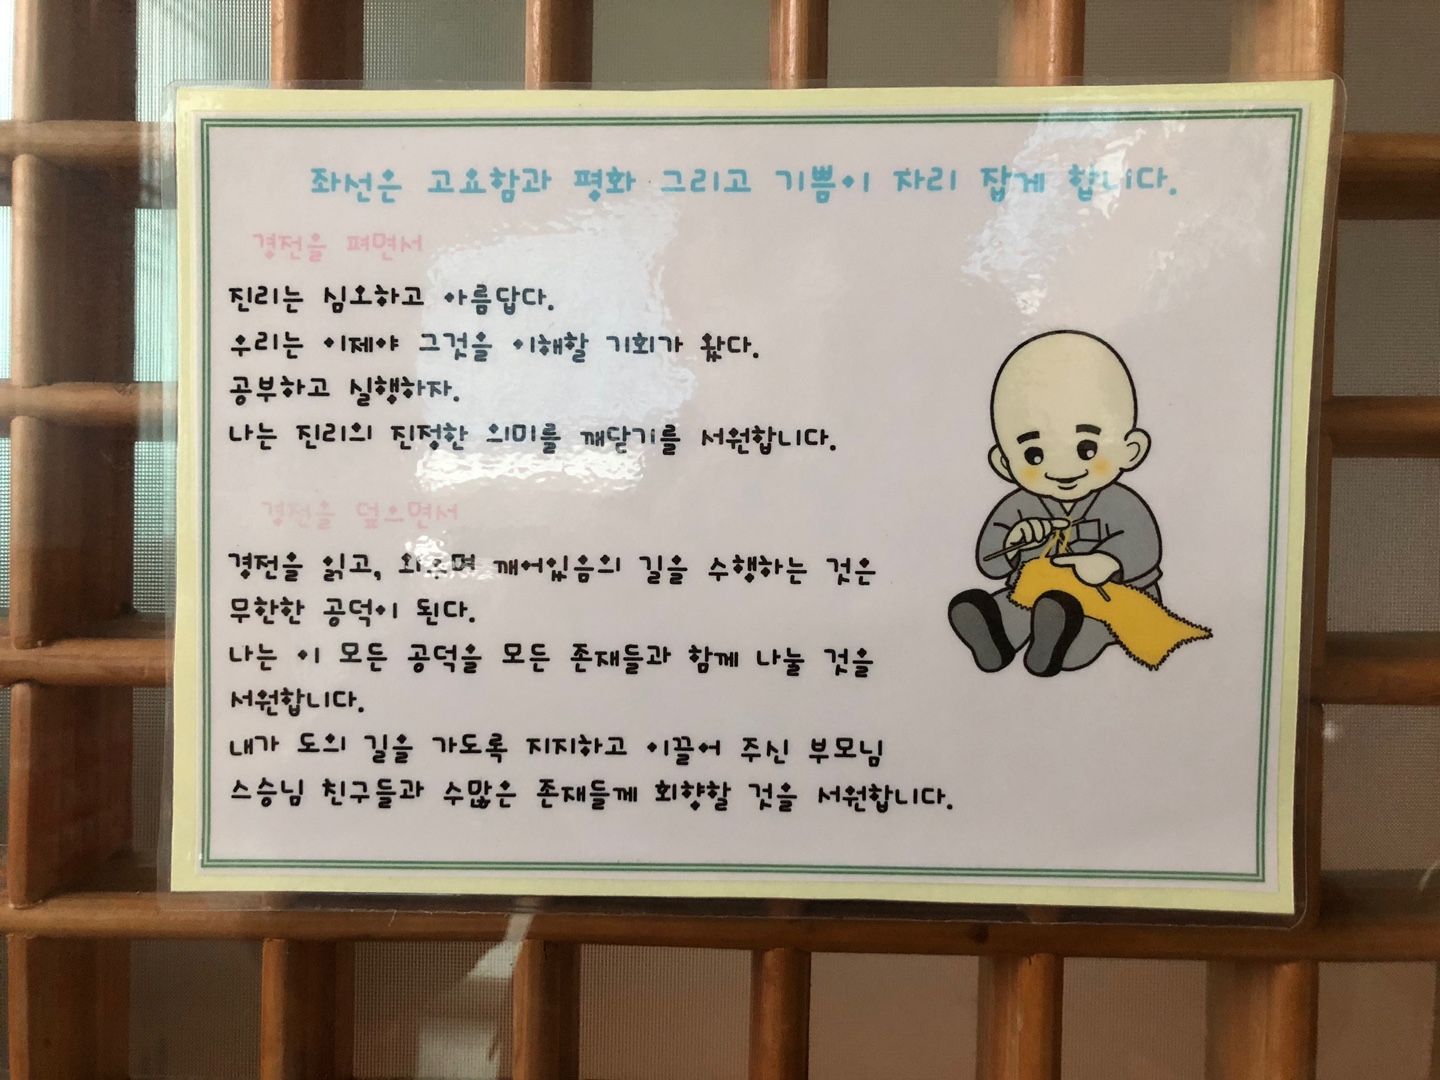 좌선은 고요함과 평화 그리고 기쁨이 자리 잡게 합니다.
경전을 펴면서
진리는 심오하고 아름답다.
우리는 이제야 그것을 이해할 기회가 왔다.
공부하고 실행하자.
나는 진리의 진정한 의미를 깨닫기를 서원합니다.
경전을 덮으면서
경전을 읽고, 외우며 깨어있음의 길을 수행하는 것은
무한한 공덕이 된다.
나는 이 모든 공덕을 모든 존재들과 함께 나눌 것을
서원합니다.
내가 도의 길을 가도록 지지하고 이끌어 주신 부모님
스승님 친구들과 수많은 존재들께 회향할 것을 서원합니다.